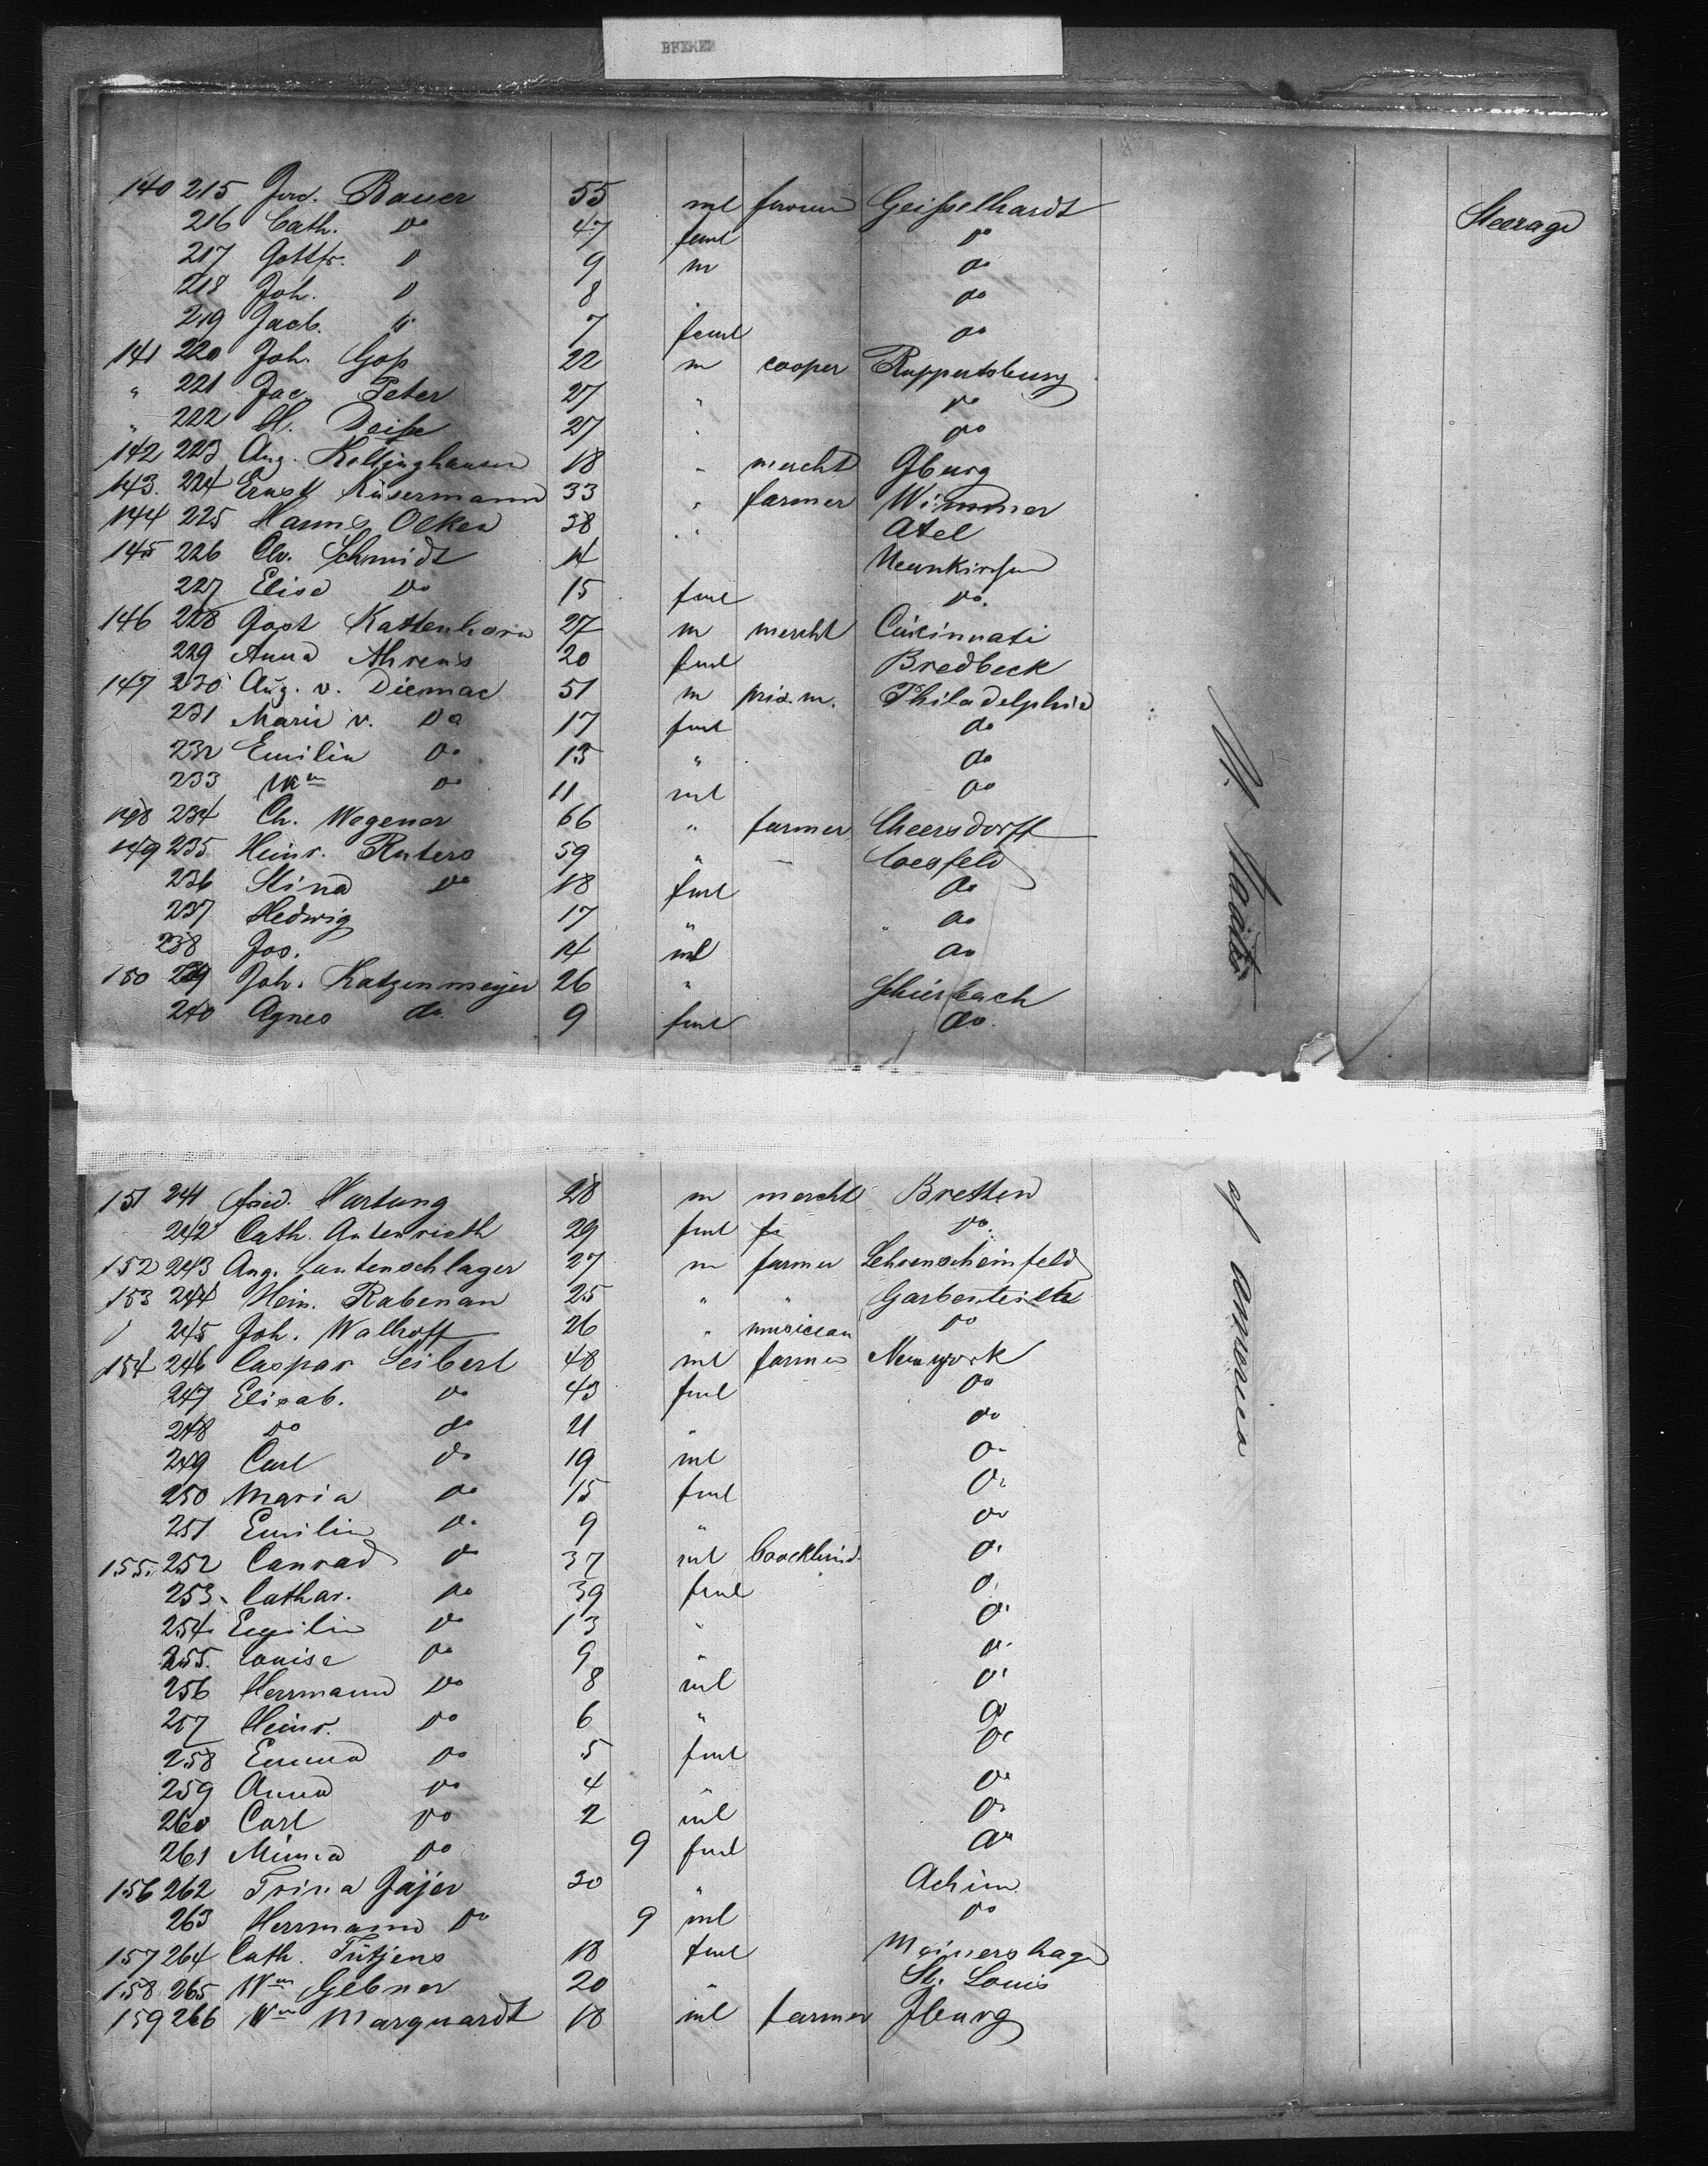 BREMEN
140 215 Ferd. Bauer 55 ml farmer Geißelhardt Steerage
216 Cath. do 47 feml do
217 Gottfr. do 9 m do
218 Joh. do 8 do
219 Jacb. do 7 feml do
141 220 Joh. Goß 22 m cooper Ruppertsburg
" 221 Jac. Peter 27 " do
" 222 H. Deiße 27 " do
142 223 Aug. Kollinghausen 18 " mercht Iburg
143. 224 Ernst Küsermann 33 " farmer Wimmer
144 225 Harms Ocken 38 " Atel
145 226 Chr. Schmidt 14 Neunkirchen
227 Elise do 15 fml do.
146 228 Jost Kattenhorn 27 m mercht Cincinnati
229 Anna Ahrens 20 fml Bredbeck
147 230 Aug. v. Diemar 51 m priv. m. Philadelphia
231 Marie v. do 17 fml do
232 Emilie do 13 " do
233 Wm do 11 ml do
148 234 Ch. Wegener 66 " farmer Cheersdorff
149 235 Heinr. Ruters 59 " — Coesfeld
236 Stina do 18 fml do
237 Hedwig 17 " do
238 Jos. 14 ml do
150 239 Joh. Katzenmeyer 26 " Schierbach
240 Agnes do. 9 fml do.
U. Staats
151 241 Fried. Hartung 28 m mercht Bretten
242 Cath. Autenrieth 29 fml do.
152 243 Aug. Lautenschlager 27 m farmer
153 244 Hein. Rabenau 25 " " Garbenteich
245 Joh. Walhoff 26 " musician do
154 246 Caspar Seibert 48 ml farmer New york
247 Elisab. do 43 fml do
248 do do 21 " do
249 Carl do 19 ml do
250 Maria do 15 fml do
251 Emilie do 9 " do
155. 252 Conrad do 37 ml do
253 Cathar. do 39 fml do
254 Emilie do 13 " do
255. Louise do 9 " do
256 Herrmann do 8 ml do
257 Heinr. do 6 " do
258 Emma do 5 fml do
259 Anna do 4 " do
260 Carl do 2 ml do
261 Minna do 9 fml do
156 262 Trina Jäjer 30 " Achim
263 Herrmann do 9 ml do
157 264 Cath. Tütjens 18 fml Meinershagen
158 265 Wm Gebner 20 " St. Louis
159 266 Wm Marquardt 18 ml farmer Iburg
of America